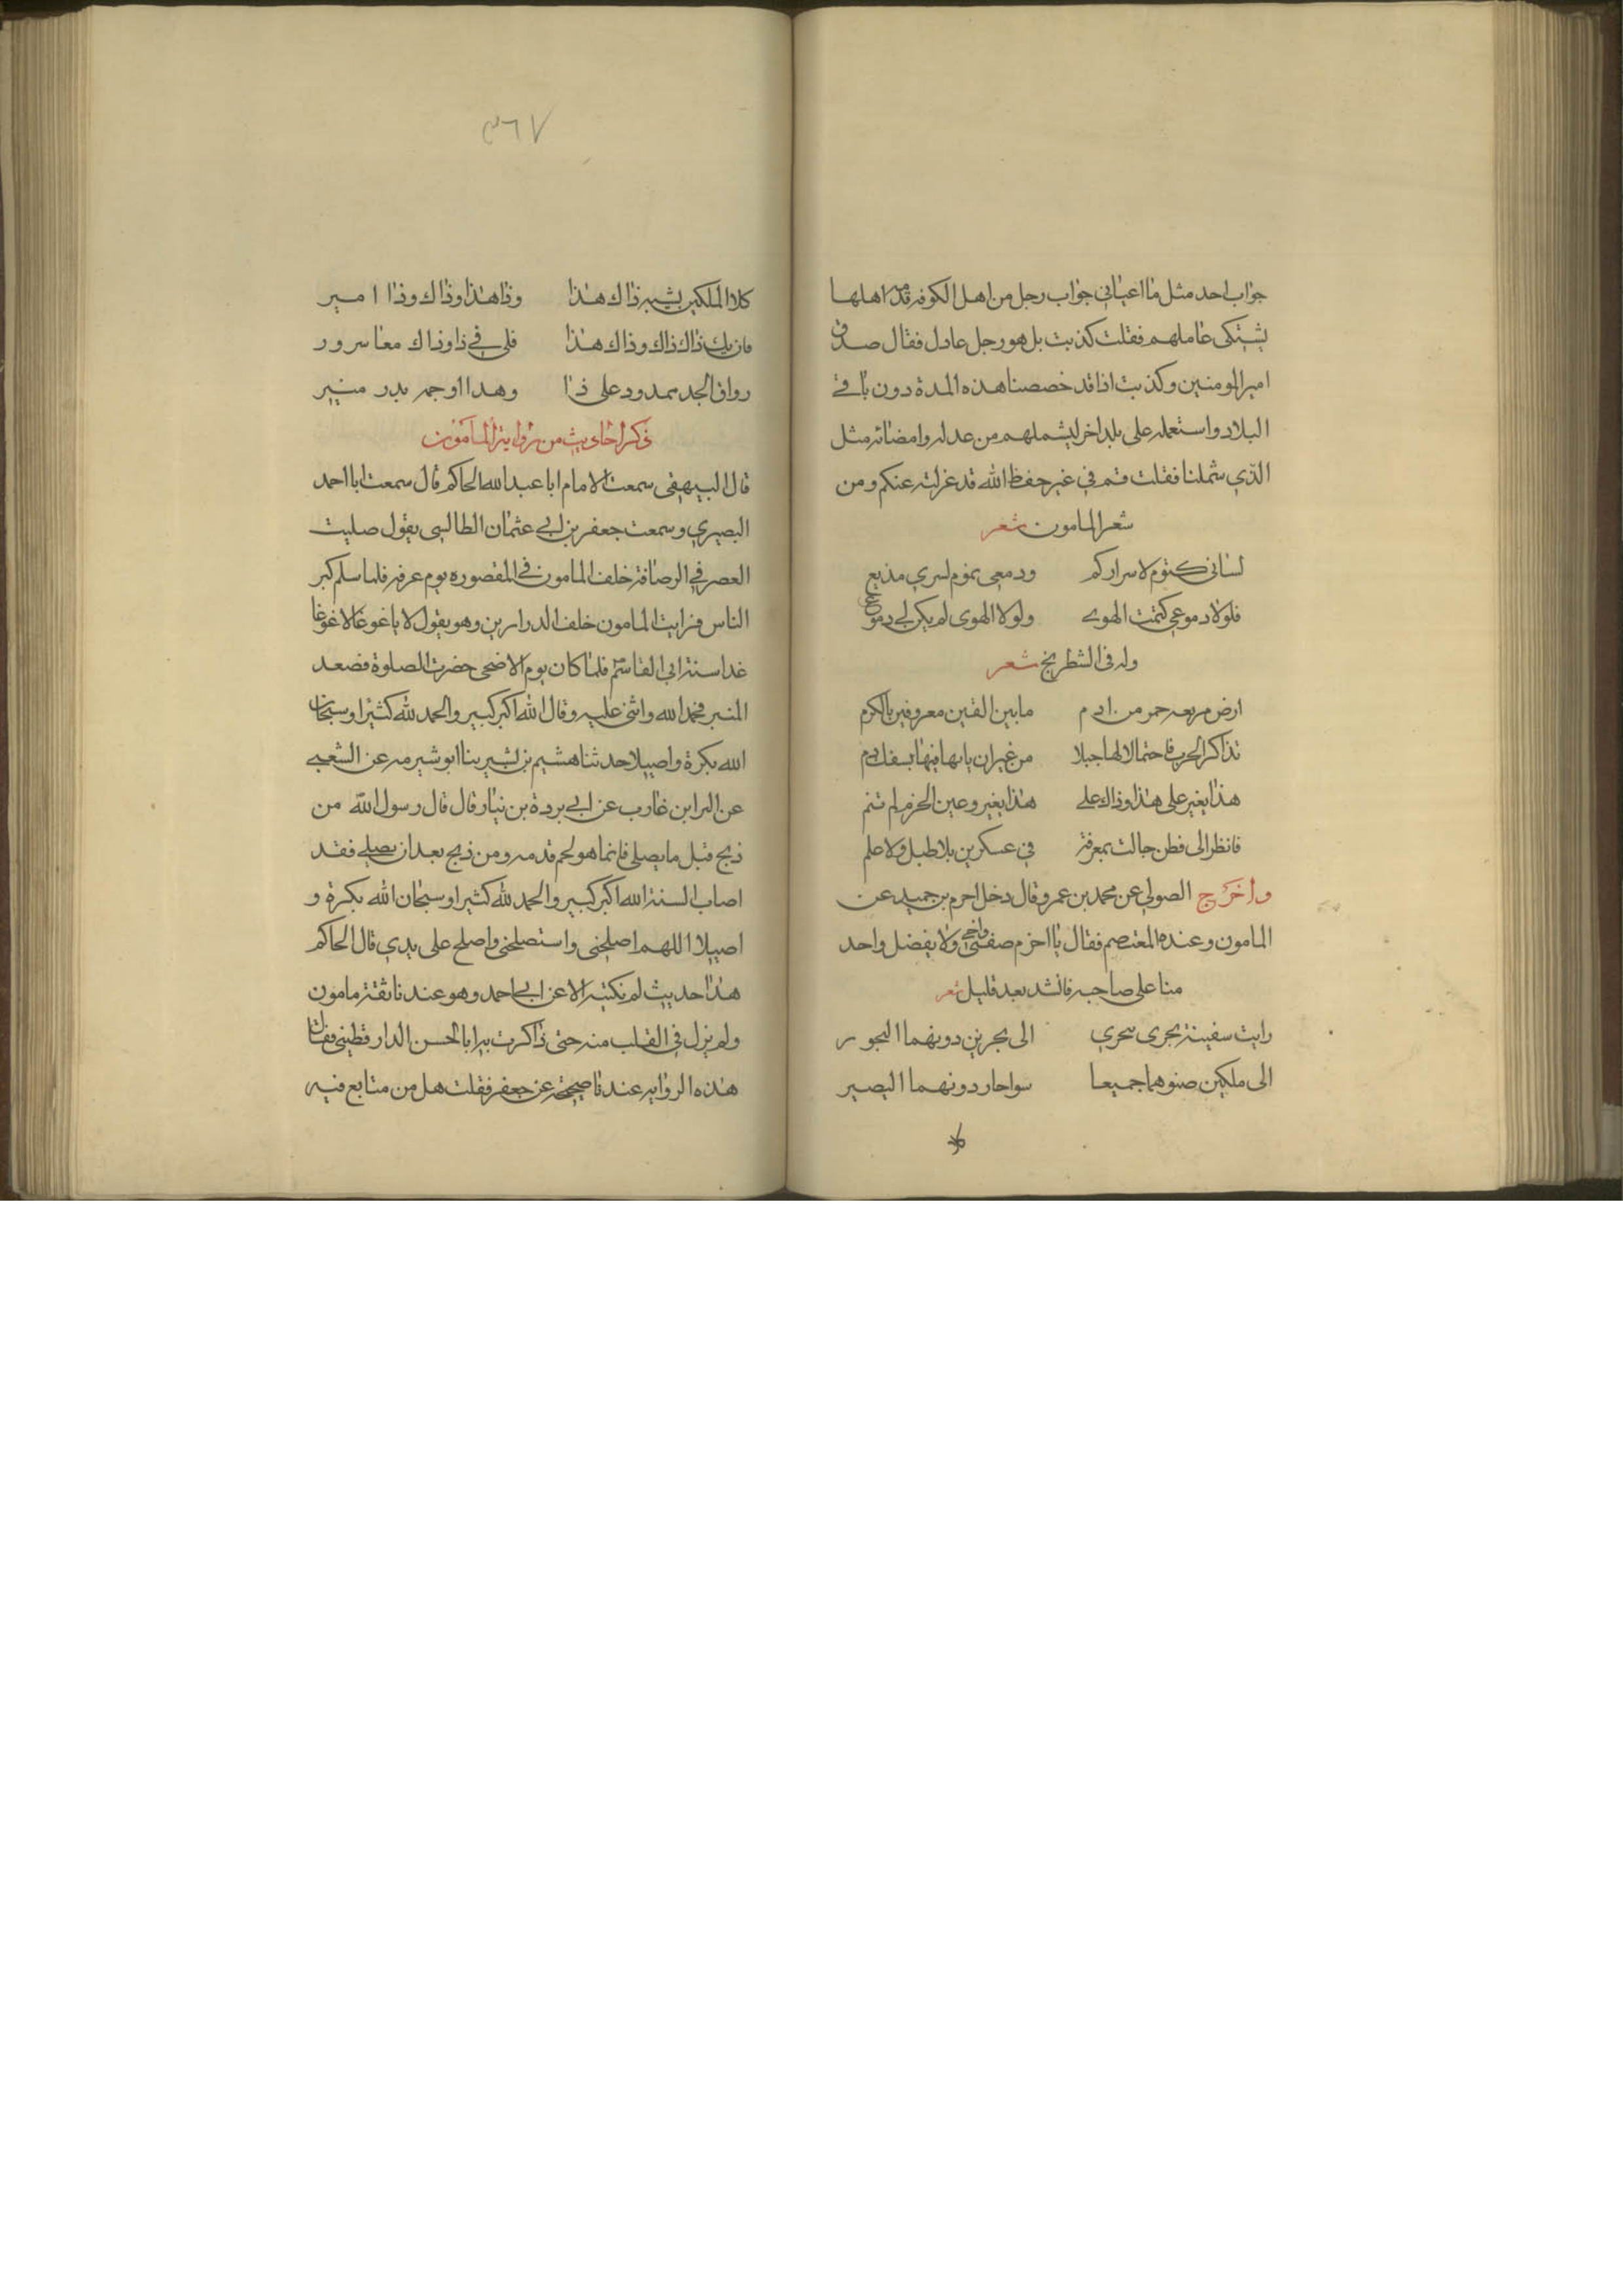 جواب احد مثل ما اعياني جواب رجل من اهل الكوفه قدم اهلها
يشتكي عاملهم فقلت كذبت بل هو رجل عادل فقال صدق
امير المومنين وكذبت اذا قد خصصنا هذه المدة دون باقي
البلاد واستعمله على بلد اخر ليشملهم من عدله وامضائه مثل
الذي شملنا فقلت قم في غير حفظ الله قد عزلته عنكم ومن
شعر المامون شعر
لساني كتوم لاسراركم ودمعي نموم لسري مذيع
فلولا دموعي كتمت الهوى ولولا الهوى لم يكن لي دموع
وله في الشطرنج شعر
ارض مربعه حمر من ادم ما بين الفين معروفين بالكرم
تذاكر الحرب فاحتالا لها حيلا من غير ان ياتها فيها بسفك دم
هذا يغير على هذا وذاك على هذا يغير وعين الحزم لم تنم
فانظر الى فطن جالت بمعرفة في عسكرين بلا طبل ولا علم
واخرج الصولي عن محمد بن عمرو قال دخل احرم بن حميد عن
المامون وعنده المعتصم فقال يا احزم صفني واخي ولا يفضل واحد
منا على صاحبه فانشد بعد قليل شعر
رايت سفينة تجري بحري الى بحرين دونهما البحور
الى ملكين صنوهما جميعا سواحار دونهما البصير
٣٦٧
كلا الملكين يشبه ذاك هذا وذا هذا وذاك وذا امير
فان يك ذاك ذاك وذاك هذا فلي في ذا وذاك معا سرور
رواق المجد ممدود على ذا وهذا اوجه بدر منير
ذكر احاديث من رواية المامون
قال البيهقي سمعت الامام ابا عبد الله الحاكم قال سمعت ابا احمد
البصيري وسمعت جعفر بن ابي عثمان الطالسي يقول صليت
العصر في الرصافة خلف المامون في المقصوره يوم عرفه فلما سلم كبر
الناس فرايت المامون خلف الدرابزين وهو يقول لا يا غوغا لا غوغا
غدا سنة ابي القاسم فلما كان يوم الاضحى حضرت الصلوة فصعد
المنبر فحمد الله واثنى عليه وقال الله اكبر كبير والحمد لله كثيرا وسبحان
الله بكرة واصيلا حدثنا هشيم بن بشير بنا ابو شبرمه عن الشعبي
عن البرا بن عازب عن ابي بردة بن نيار قال قال رسول الله من
ذبح قبل ما يصلي فانما هو لحم قدمه ومن ذبح بعد ان يصلي فقد
اصاب السنة الله اكبر كبير والحمد لله كثيرا وسبحان الله بكرة و
اصيلا اللهم اصلحني واستصلحني واصلح على يدي قال الحاكم
هذا حديث لم نكتبه الا عن ابي احمد وهو عندنا ثقة مامون
ولم يزل في القلب منه حتى ذاكرت به ابا الحسن الدارقطيني فقال
هذه الروايه عندنا صحيحة عن جعفر فقلت هل من متابع فيه